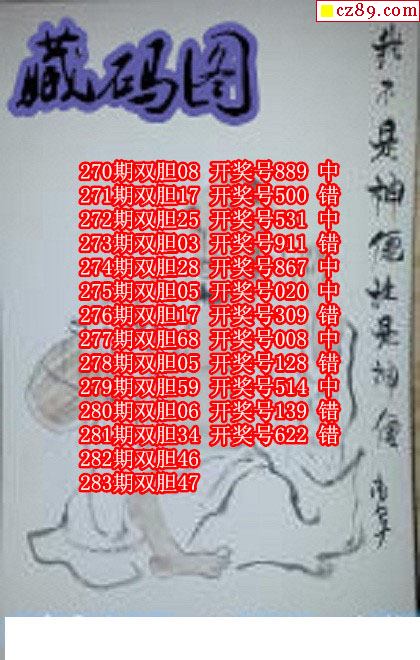 cz89.com
臧码图
270期双胆08 开奖号889 中
271期双胆17 开奖号500 错
272期双胆25 开奖号531 中
273期双胆03 开奖号911 错
274期双胆28 开奖号867 中
275期双胆05 开奖号020 中
276期双胆17 开奖号309 错
277期双胆68 开奖号008 中
278期双胆05 开奖号128 错
279期双胆59 开奖号514 中
280期双胆06 开奖号139 错
281期双胆34 开奖号622 错
282期双胆46
283期双胆47
我不是神
是神